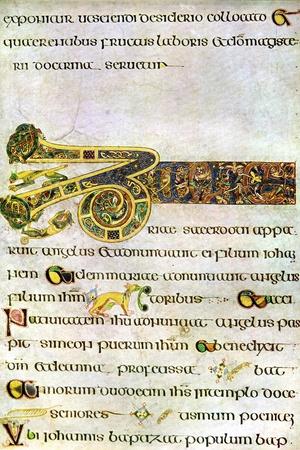 exponitur uescendi desiderio collocato &
quaerentibus fructus laboris & do magiste
rii doctrina seruetur
riae sacerdoti appa
ruit angelus & adnuntiauit ei filium iohan
nem & idem mariae adnuntiauit angelus
filium ihm toribus acci
Natiuitatem ihu adnuntiat angelus pas
pit simeon puerum ihm & benedixit
dm & de anna profetissa bat
Annorum duodecim ihs in templo doce
seniores
Ubi iohannis baptizat populum bap